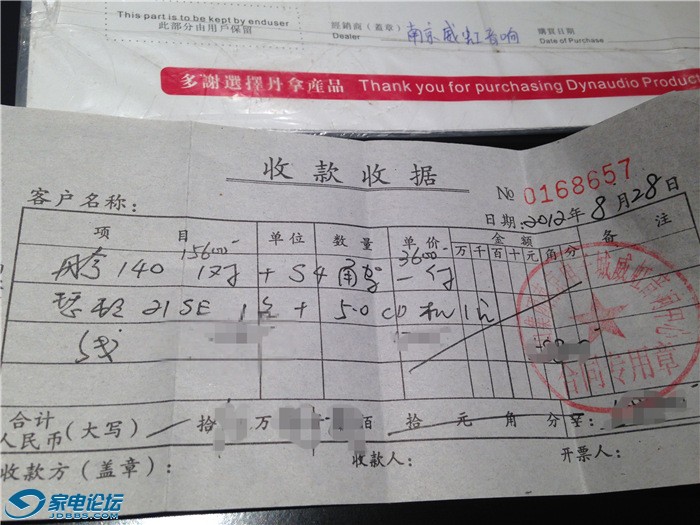 This part is to be kept by enduser
此部分由用戶保留
經銷商（蓋章）
Dealer
南京威虹音响
購買日期
Date of Purchase
多謝選擇丹拿產品 Thank you for purchasing Dynaudio Produc
收款收据
№ 0168657
客户名称：
日期：2012年8月28日
项目 单位 数量 单价 金额 备注
万千百十元角分
15600-
3600-
丹拿140 1对 + S4 一付
21SE 1台 + 5.0 CD机 1台
线
合同专用章
合计
人民币（大写） 拾 万 佰 拾 元 角 分
收款方（盖章）：
收款人：
开票人：
家电论坛
JDBBS.COM